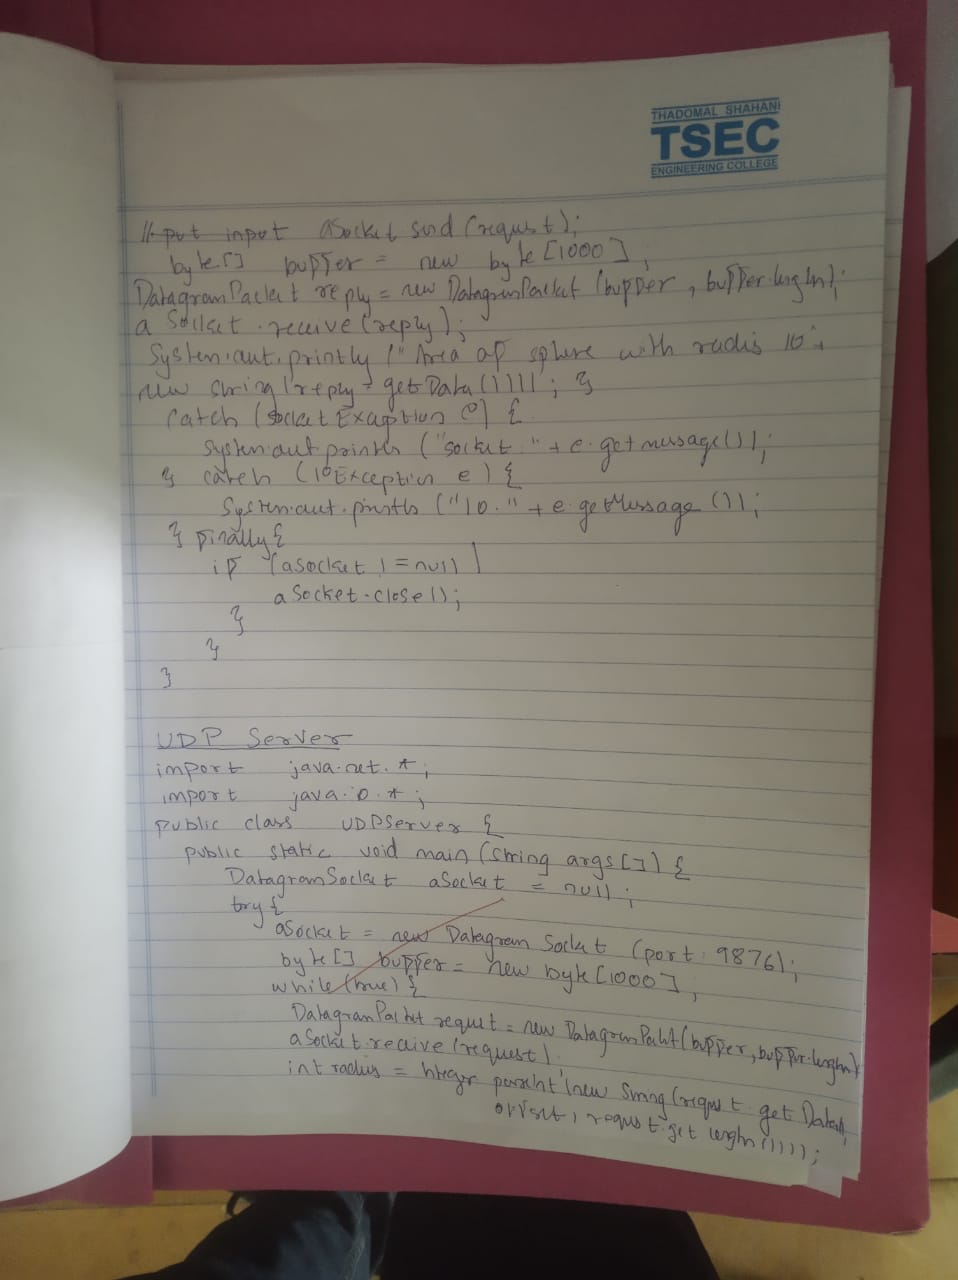 THADOMAL SHAHANI
TSEC
ENGINEERING COLLEGE
put input aSocket send (request);
byte[] buffer = new byte [1000],
DatagramPacket reply = new DatagramPacket (buffer, buffer.length);
a Socket.receive (reply);
System.out.println (" Area of sphere with radis 10:
new string (reply.getData())));}
catch (Socket Exception e) {
System.out.println ("Socket " + e.getmessage());
} catch (IOException e) {
System.out.println ("IO." + e.getMessage ());
} finally {
if (aSocket != null)
a Socket.close();
}
}
}
UDP Server
import java.net.*;
import java.io.*;
public class UDPServer {
public static void main (String args[]) {
DatagramSocket aSocket = null;
try {
aSocket = new Datagram Socket (port: 9876);
byte [] buffer = new byte [1000],
while (true) {
DatagramPacket request = new DatagramPacket (buffer, buffer.length)
aSocket.receive (request).
int radius = Integer parseInt (new String (request.get Data(),
offset, request.get length())));